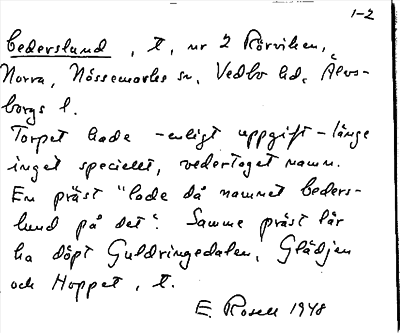 1-2
Cederslund, t, nr 2 Körviken,
Norra, Nössemarks sn, Vedbo hd, Älvs-
borgs l.
Torpet hade - enligt uppgift - länge
inget speciellt, vedertaget namn.
En präst "lade då namnet Ceders-
lund på det". Samme präst lär
ha döpt Guldringedalen, Glädjen
och Hoppet, t.
E. Rosell 1948